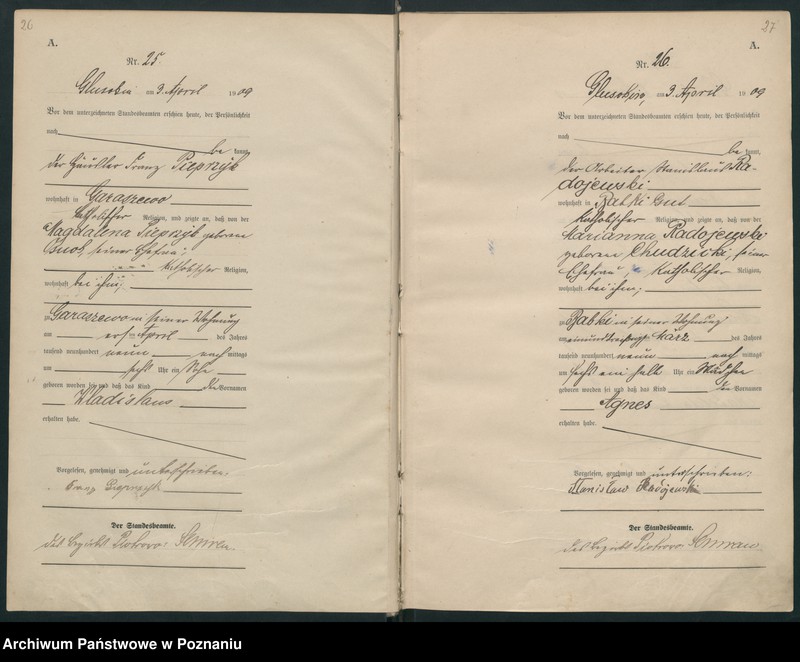 26
A.
Nr. 25.
am 3. April 1909
Vor dem unterzeichneten Standesbeamten erschien heute, der Persönlichkeit
nach
be kannt,
der Häusler Franz Pieprzyk
wohnhaft in Garaszewo
katholischer Religion, und zeigte an, daß von der
Magdalena Pieprzyk geborene
seiner Ehefrau,
katholischer Religion,
wohnhaft bei ihm,
zu Garaszewo in seiner Wohnung
am ersten April des Jahres
tausend neunhundert neun nach mittags
um sechs Uhr ein
geboren worden sei und daß das Kind den Vornamen
Wladislaus
erhalten habe.
Vorgelesen, genehmigt und unterschrieben.
Franz Pieprzyk
Der Standesbeamte.
des Bezirks Piotrowo
27
A.
Nr. 26.
am 3. April 1909
Vor dem unterzeichneten Standesbeamten erschien heute, der Persönlichkeit
nach
be kannt,
der Arbeiter Stanislaus Ra-
dojewski
wohnhaft in Babki Gut
katholischer Religion, und zeigte an, daß von der
Marianna Radojewski
geborene Chudzicki, seiner
Ehefrau, katholischer Religion,
wohnhaft bei ihm,
zu Babki in seiner Wohnung
am einunddreißigsten März des Jahres
tausend neunhundert neun nach mittags
um sechs ein halb Uhr ein Mädchen
geboren worden sei und daß das Kind den Vornamen
Agnes
erhalten habe.
Vorgelesen, genehmigt und unterschrieben:
Stanisław Radojewski
Der Standesbeamte.
des Bezirks Piotrowo
Archiwum Państwowe w Poznaniu